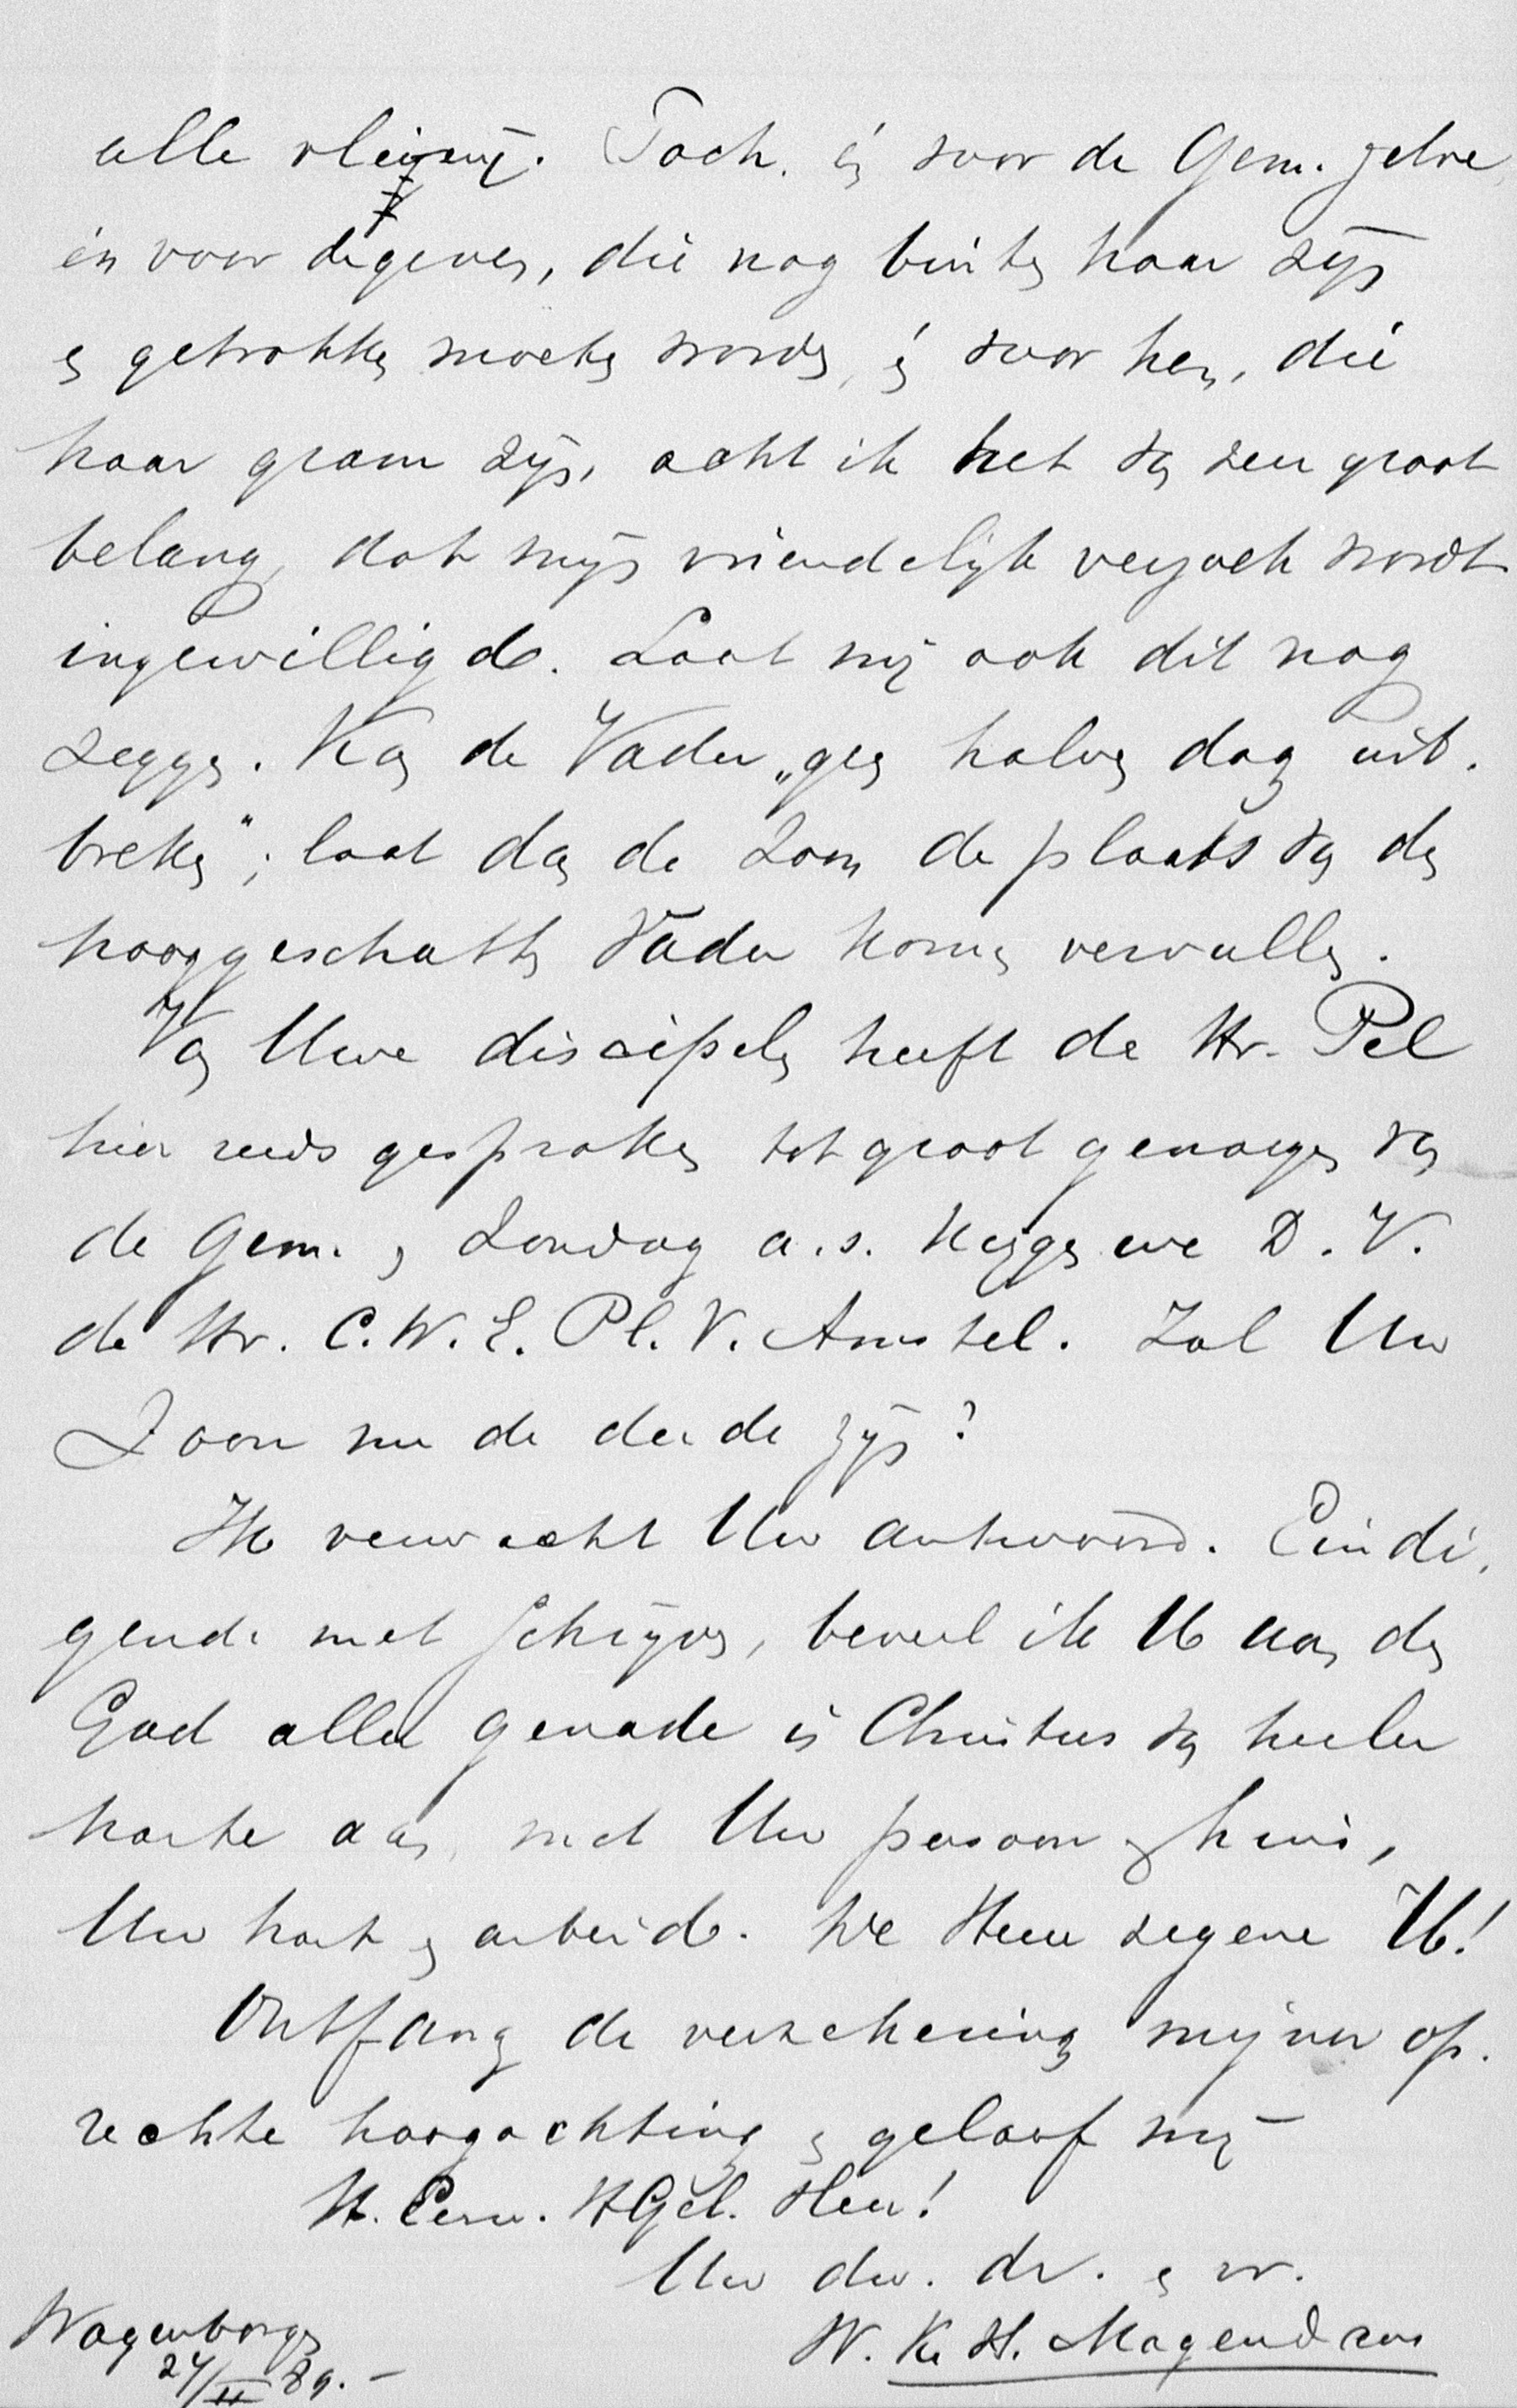 alle vleierij. Toch, èn voor de Gem. zelve,
èn voor degenen, die nog buiten haar zijn
en getrokken moeten worden, èn voor hen, die
haar gram zijn, acht ik het van zeer groot
belang, dat mijn vriendelijk verzoek wordt
ingewilligd. Laat mij ook dit nog
zeggen. Kan de Vader „geen halven dag uit-
breken"; laat dan de Zoon de plaats van den
hooggeschatten Vader komen vervullen.
Van Uwe discipelen heeft de Hr. Pel
hier reeds gesproken tot groot genoegen van
de Gem. en Zondag a.s. krijgen we D.V.
de Hr. C.W.E. Pl. V. Amstel. Zal Uw
Zoon nu de derde zijn?
Ik verwacht Uw antwoord. Eindi-
gende met schrijven, beveel ik U aan den
God aller genade in Christus van heeler
harte aan, met Uw persoon en huis,
Uw hart en arbeid. De Heere zegene U!
Ontfang de verzekering mijner op-
rechte hoogachting en geloof mij
H. Eerw. HGel. Heer!
Uw dw. dr. en vr.
W. K. H. Magendans
Wagenborgen
24/II 89.-